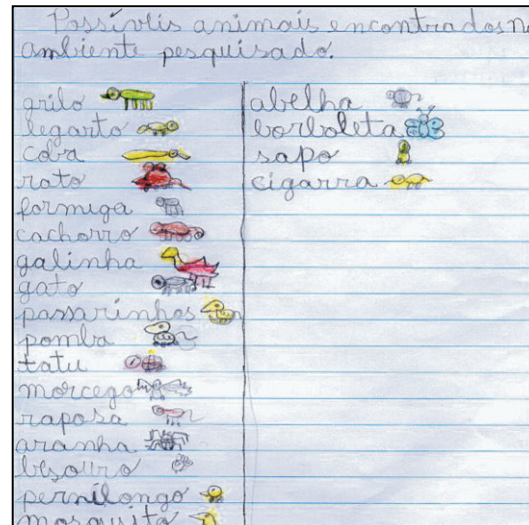 Possíveis animais encontrados no
ambiente pesquisado.
grilo
legarto
cobra
rato
formiga
cachorro
galinha
gato
passarinhos
pomba
tatu
morcego
raposa
aranha
besorro
pernilongo
mosquito
abelha
borboleta
sapo
cigarra